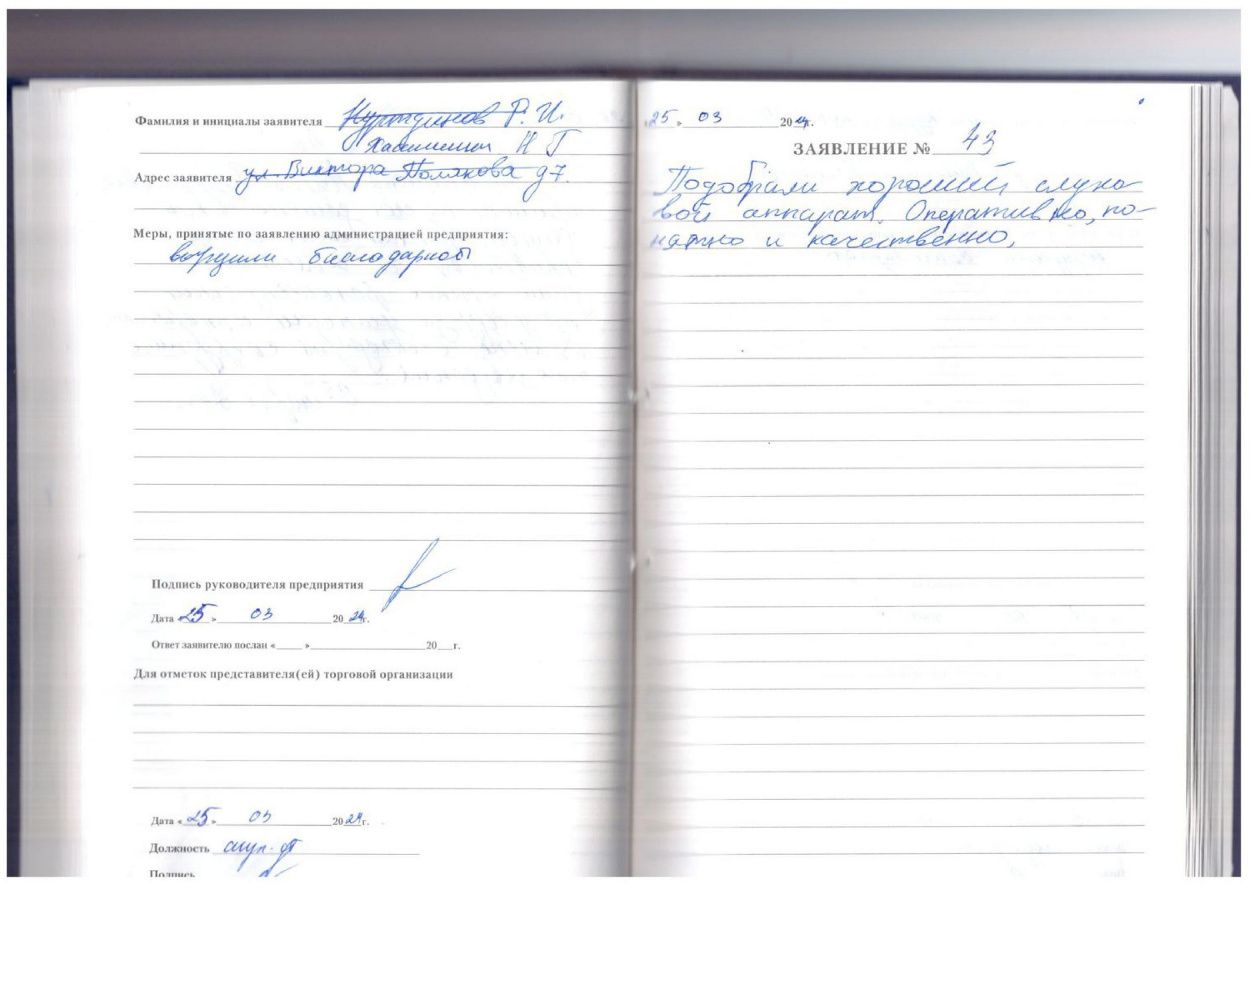 Фамилия и инициалы заявителя Нуртдинов Р. И.
Н Г
Адрес заявителя ул. Виктора Полякова д7.
Меры, принятые по заявлению администрацией предприятия:
Подпись руководителя предприятия
Дата 25 » 03 20 24 г.
Ответ заявителю послан «____ »____ 20__г.
Для отметок представителя(ей) торговой организации
Дата « 25 » 03 20 24 г.
Должность
Подпись
25 » 03 20 24 г.
ЗАЯВЛЕНИЕ № 43
Подобрали хороший слухо
вой аппарат. Оперативно, по-
нятно и качественно.